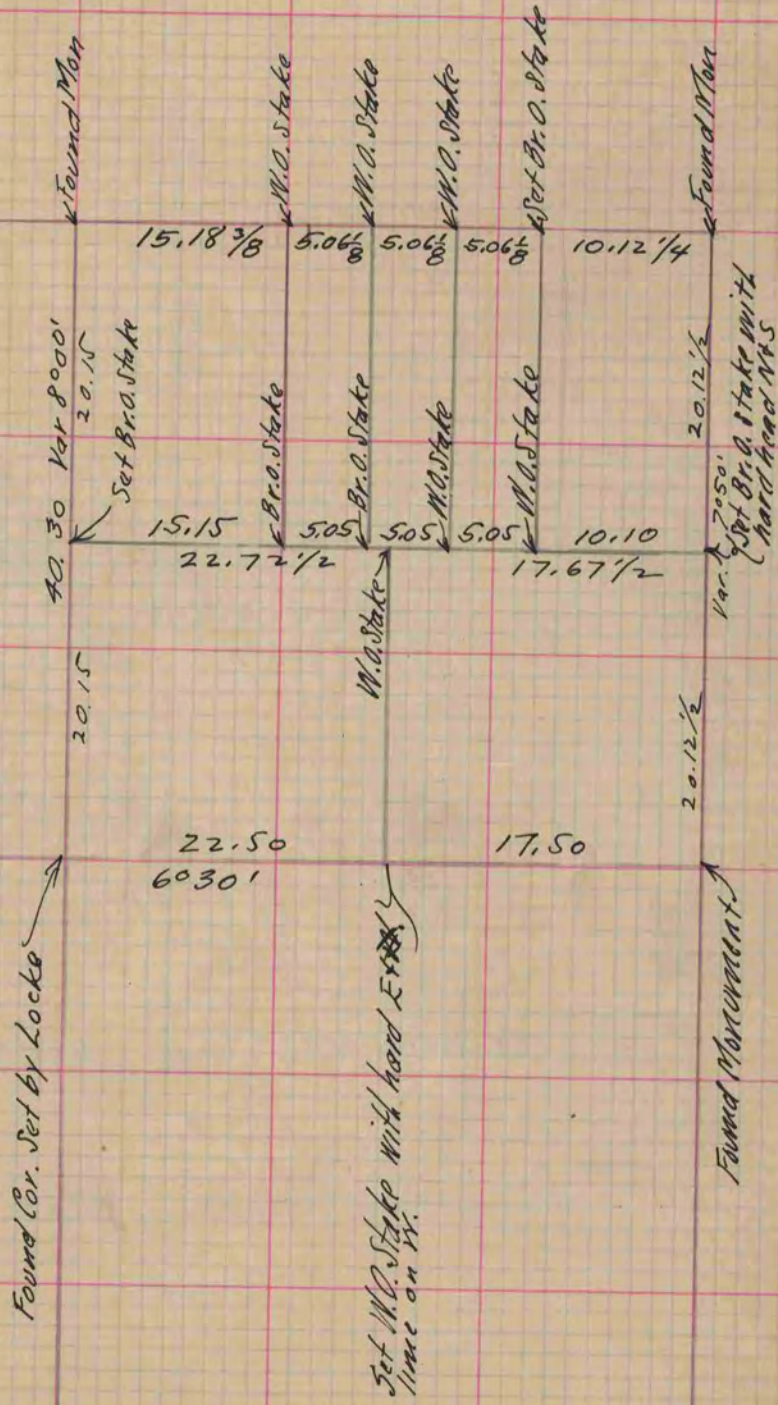 Found Mon
W.O. Stake
W.O. Stake
W.O. Stake
Set Br.O. Stake
Found Mon
15.18 3/8
5.06 1/8
5.06 1/8
5.06 1/8
10.12 1/4
40.30 Var 8°00'
20.15
Set Br.O. Stake
Br.O. Stake
Br.O. Stake
W.O. Stake
W.O. Stake
20.12 1/2
Var. 7°50'
Set Br.O. Stake with
hard head N&S
15.15
5.05
5.05
5.05
10.10
22.72 1/2
17.67 1/2
W.O. Stake
20.15
20.12 1/2
22.50
17.50
6°30'
Found Cor. Set by Locke
Set W.O. Stake with hard E
lime on W.
Found Monument